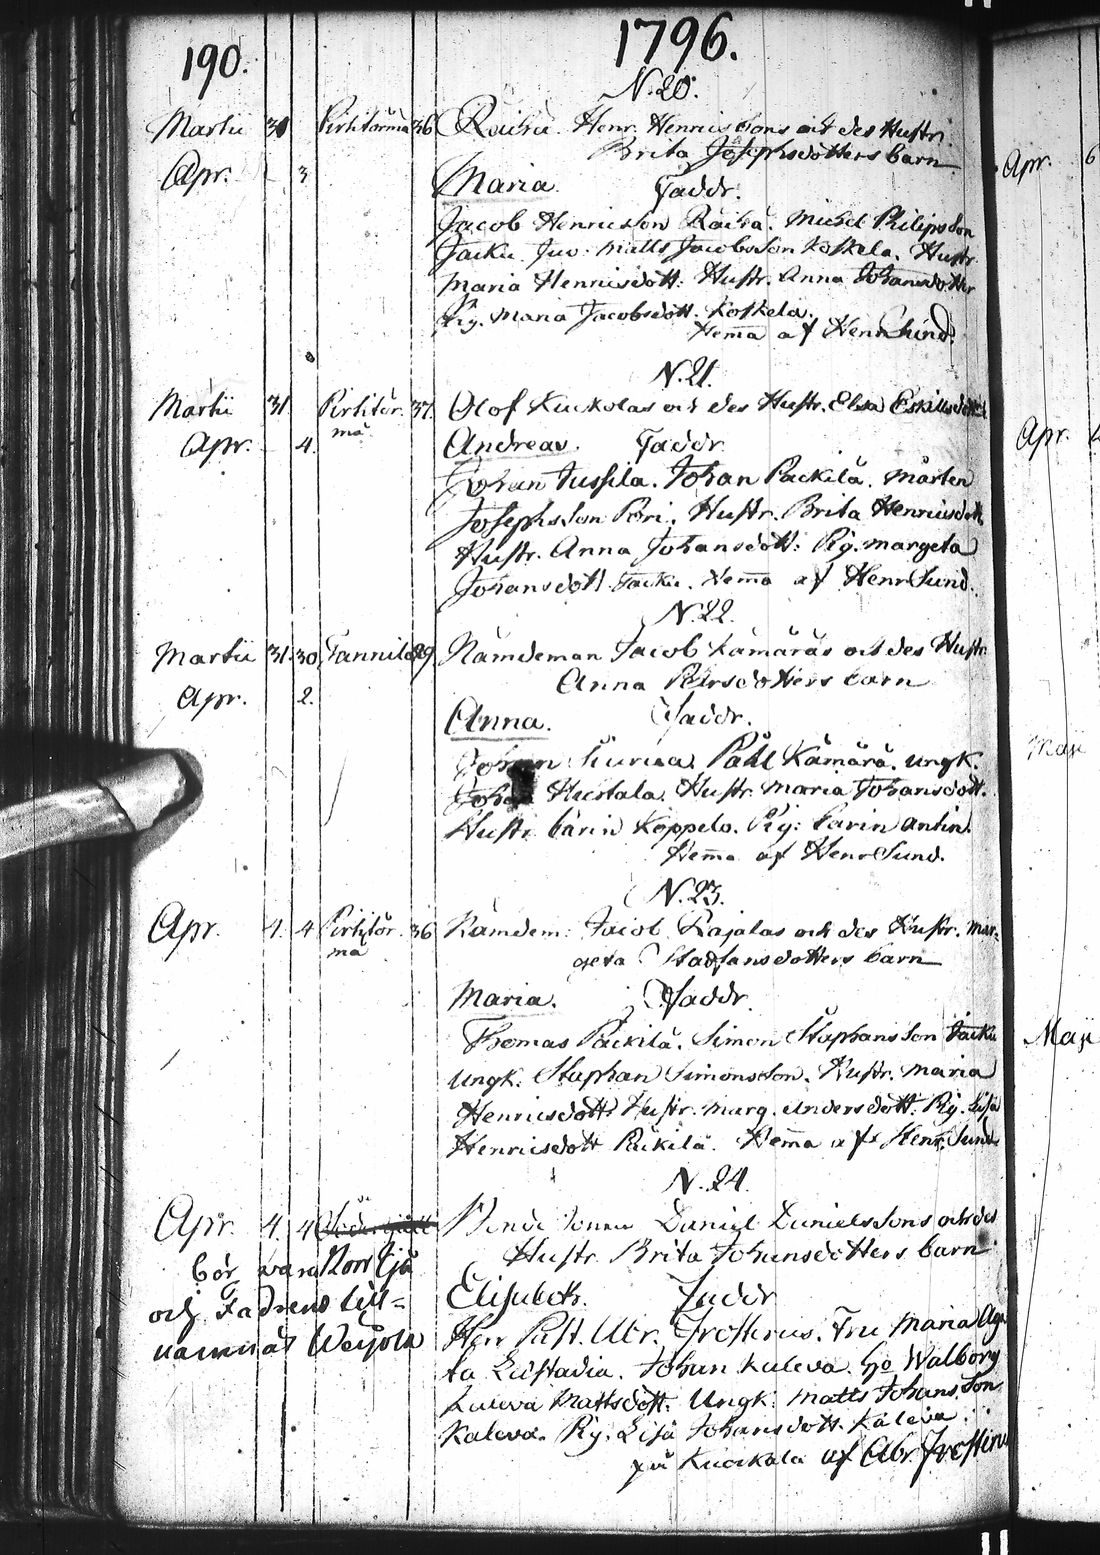 190.
1796.
N. 20.
Martii 30 Pirttitörmä 36 Räihä Henr. Henricssons och des Hustr.
Brita Josephsdotters barn
Apr. 3 Maria. Faddr.
Jacob Henricsson Räihä. Michel Philipsson
Jacku Juv. Matts Jacobsson Koskela. Hustr.
Maria Henricsdott. Hustr. Anna Johansdotter
Pig. Maria Jacobsdott. Koskela.
Hema af Henr Sund.
N. 21.
Martii 31. Pirttitör- 37 Olof Kuckolas och des Hustr. Elsa Eskilsdott.
mä
Apr. 4. Andreas. Faddr.
Johan Jussila. Johan Päckilä. Mårten
Josephsson Pori. Hustr. Brita Henricsdott.
Hustr. Anna Johansdott: Pig. Margeta
Johansdott Jacku. Hema af Henr Sund.
N. 22.
Martii 31. 30 Tannila 29 Nämdeman Jacob Kämäräs och des Hustr.
Anna Persdotters barn
Apr. 2. Anna. Faddr.
Johan Påhl Kämärä. Ungk.
Johan Huertala. Hustr. Maria Johansdott.
Hustr. Carin Koppelo. Pig: Carin Antin.
Hema af Henr Sund.
N. 23.
Apr. 4. 4 Pirttitör- 36 Nämdem: Jacob Rajalas och des Hustr. Mar-
mä
geta Stadfansdotters barn
Maria. Faddr.
Thomas Päckilä. Simon Staphansson Jacku
Ungk. Staphan Simonsson. Hustr. Maria
Henricsdott. Hustr. Marg. Andersdott. Pig. Lisa
Henricsdott Päckilä. Hema af Henr. Sund.
N. 24.
Apr. 4. 4 Bonde Sonen Daniel Danielssons och des
Hustr. Brita Johansdotters barn
bör vara Norr Ijå
och Fadrens till-
namnät Weijola
Elisabeth. Faddr
Herr Past. Abr. Frosterus. Fru Maria Aga-
ta Johan Kaleva. Ho Walborg
Kaleva Mattsdott. Ungk. Matts Johansson
Kaleva. Pig. Lisa Johansdott. Kaleva
på Kuckala af Abr. Frosterus
Apr. 6
Apr.
Maji
Maji